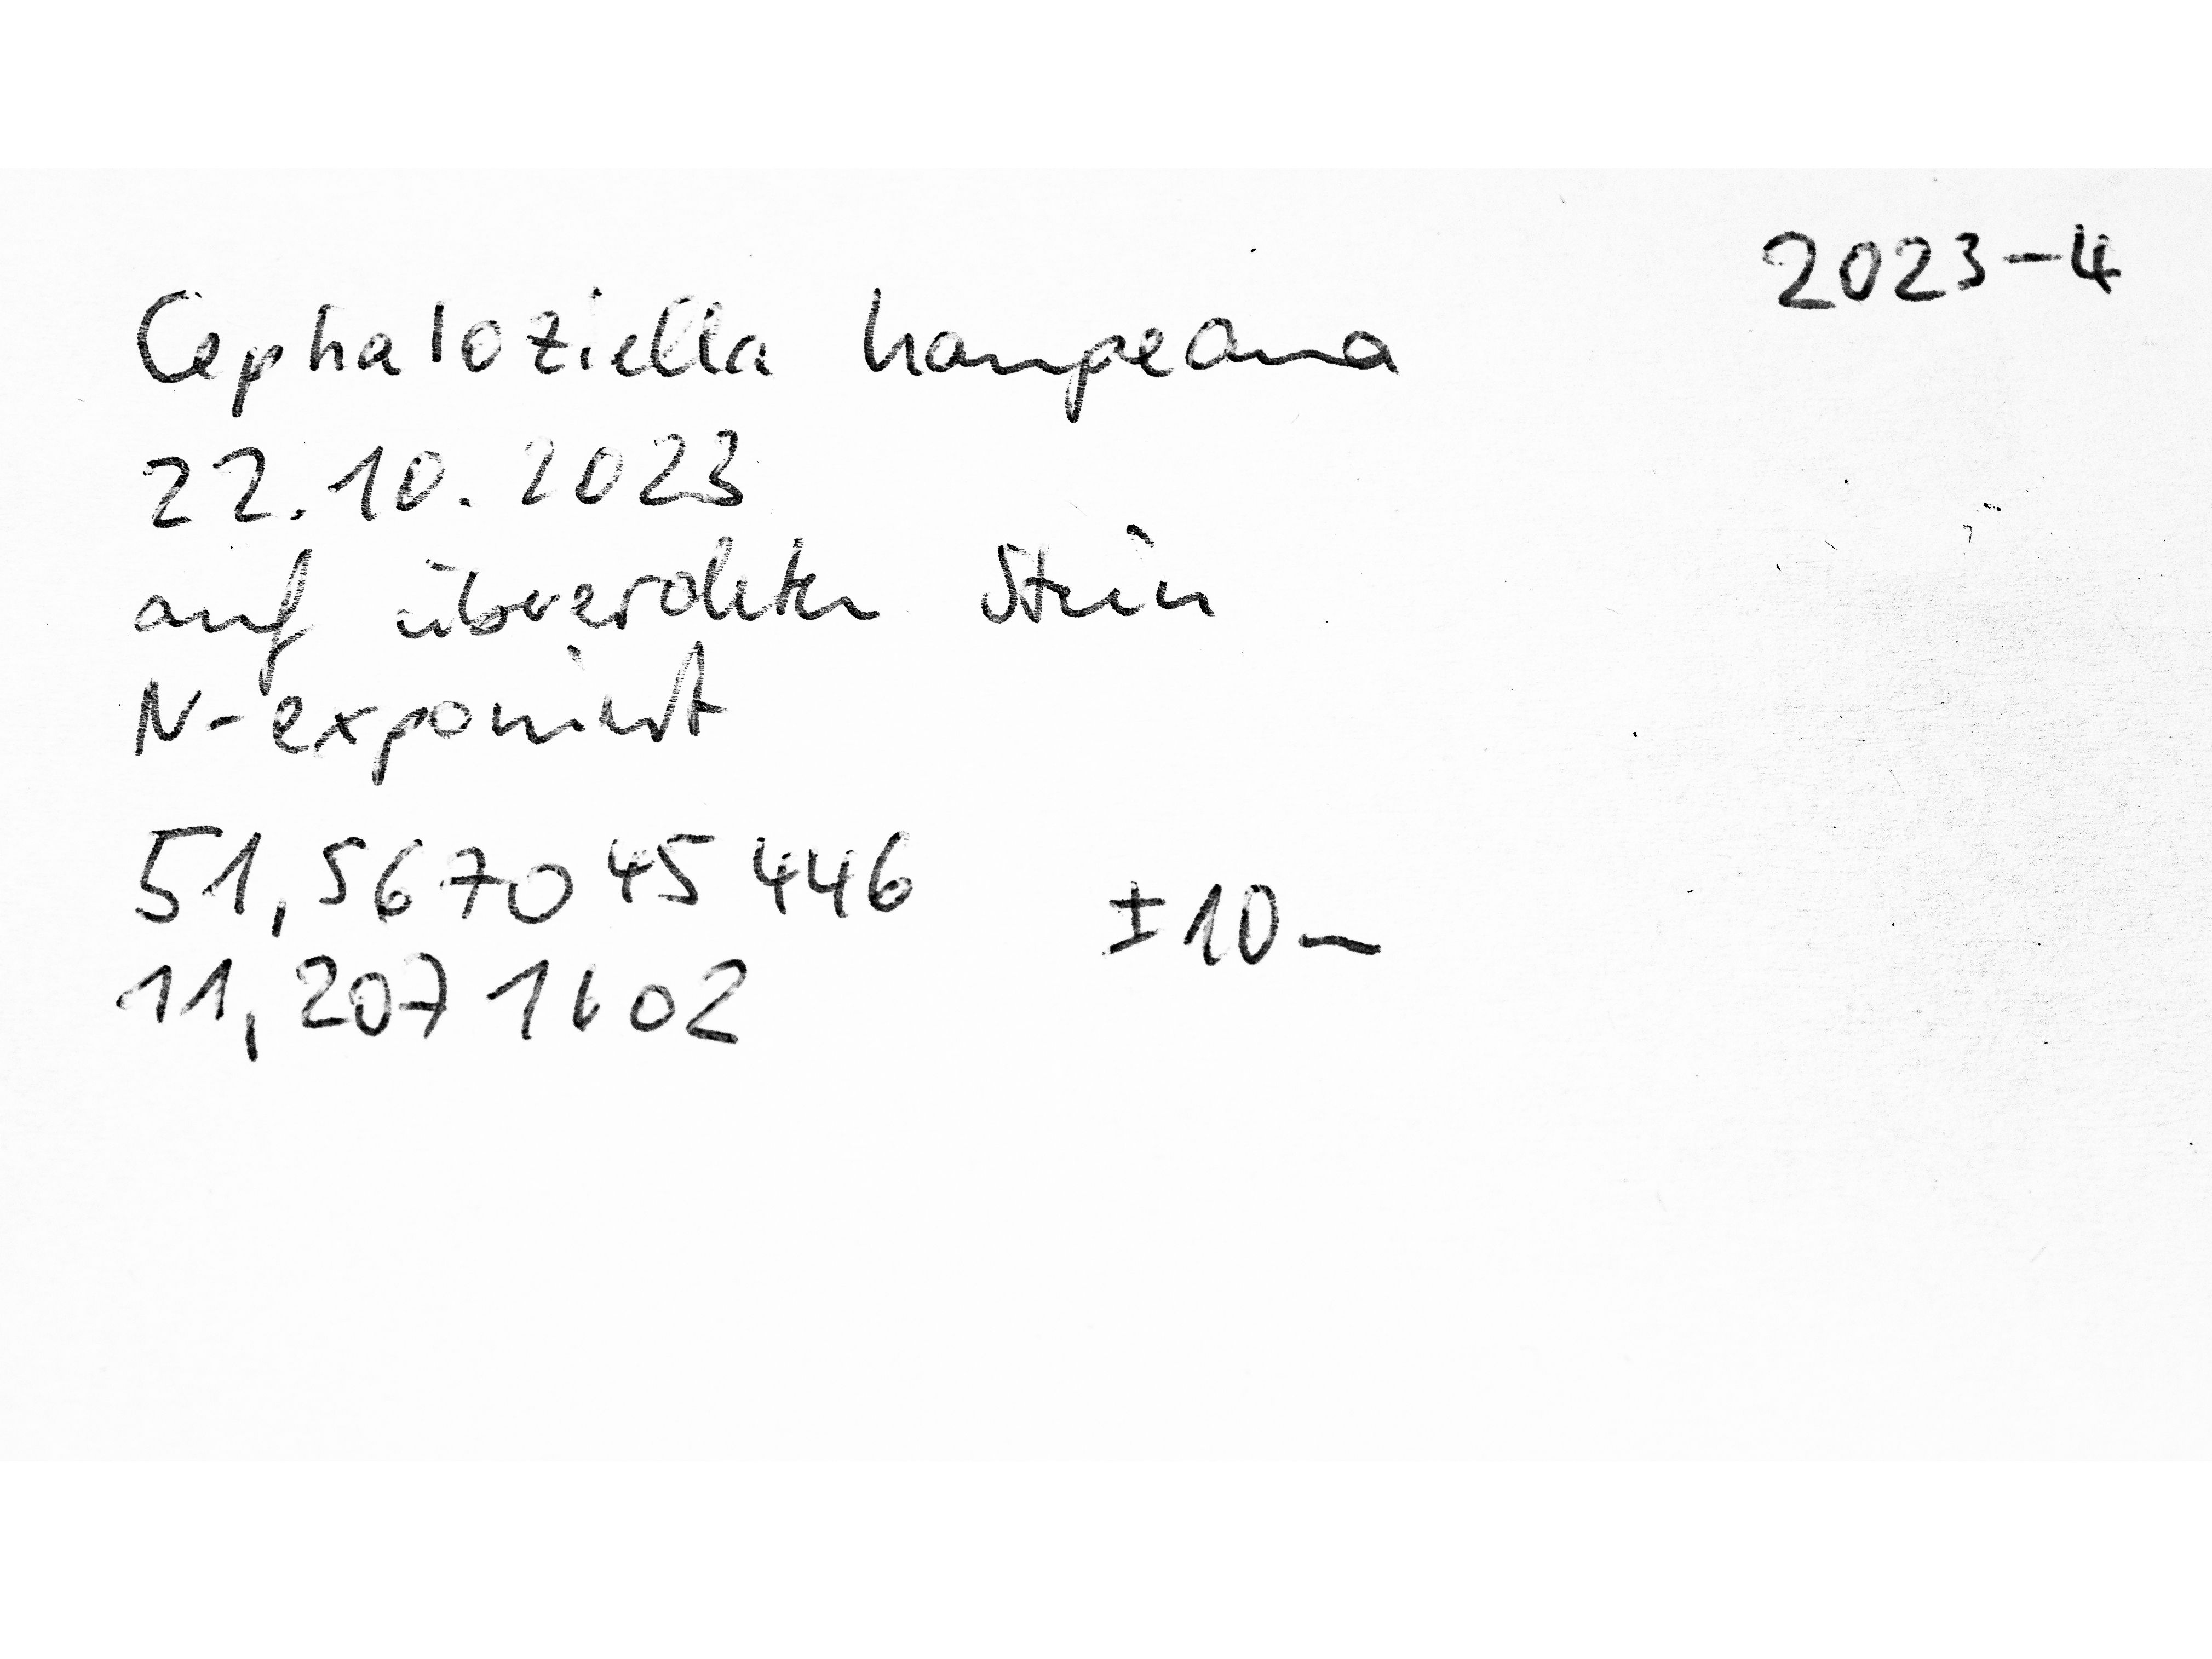 2023-4
Cephaloziella hampeana
22.10.2023
auf übererdeten Stein
N-exponiert
51,567045446
±10m
11,2071602